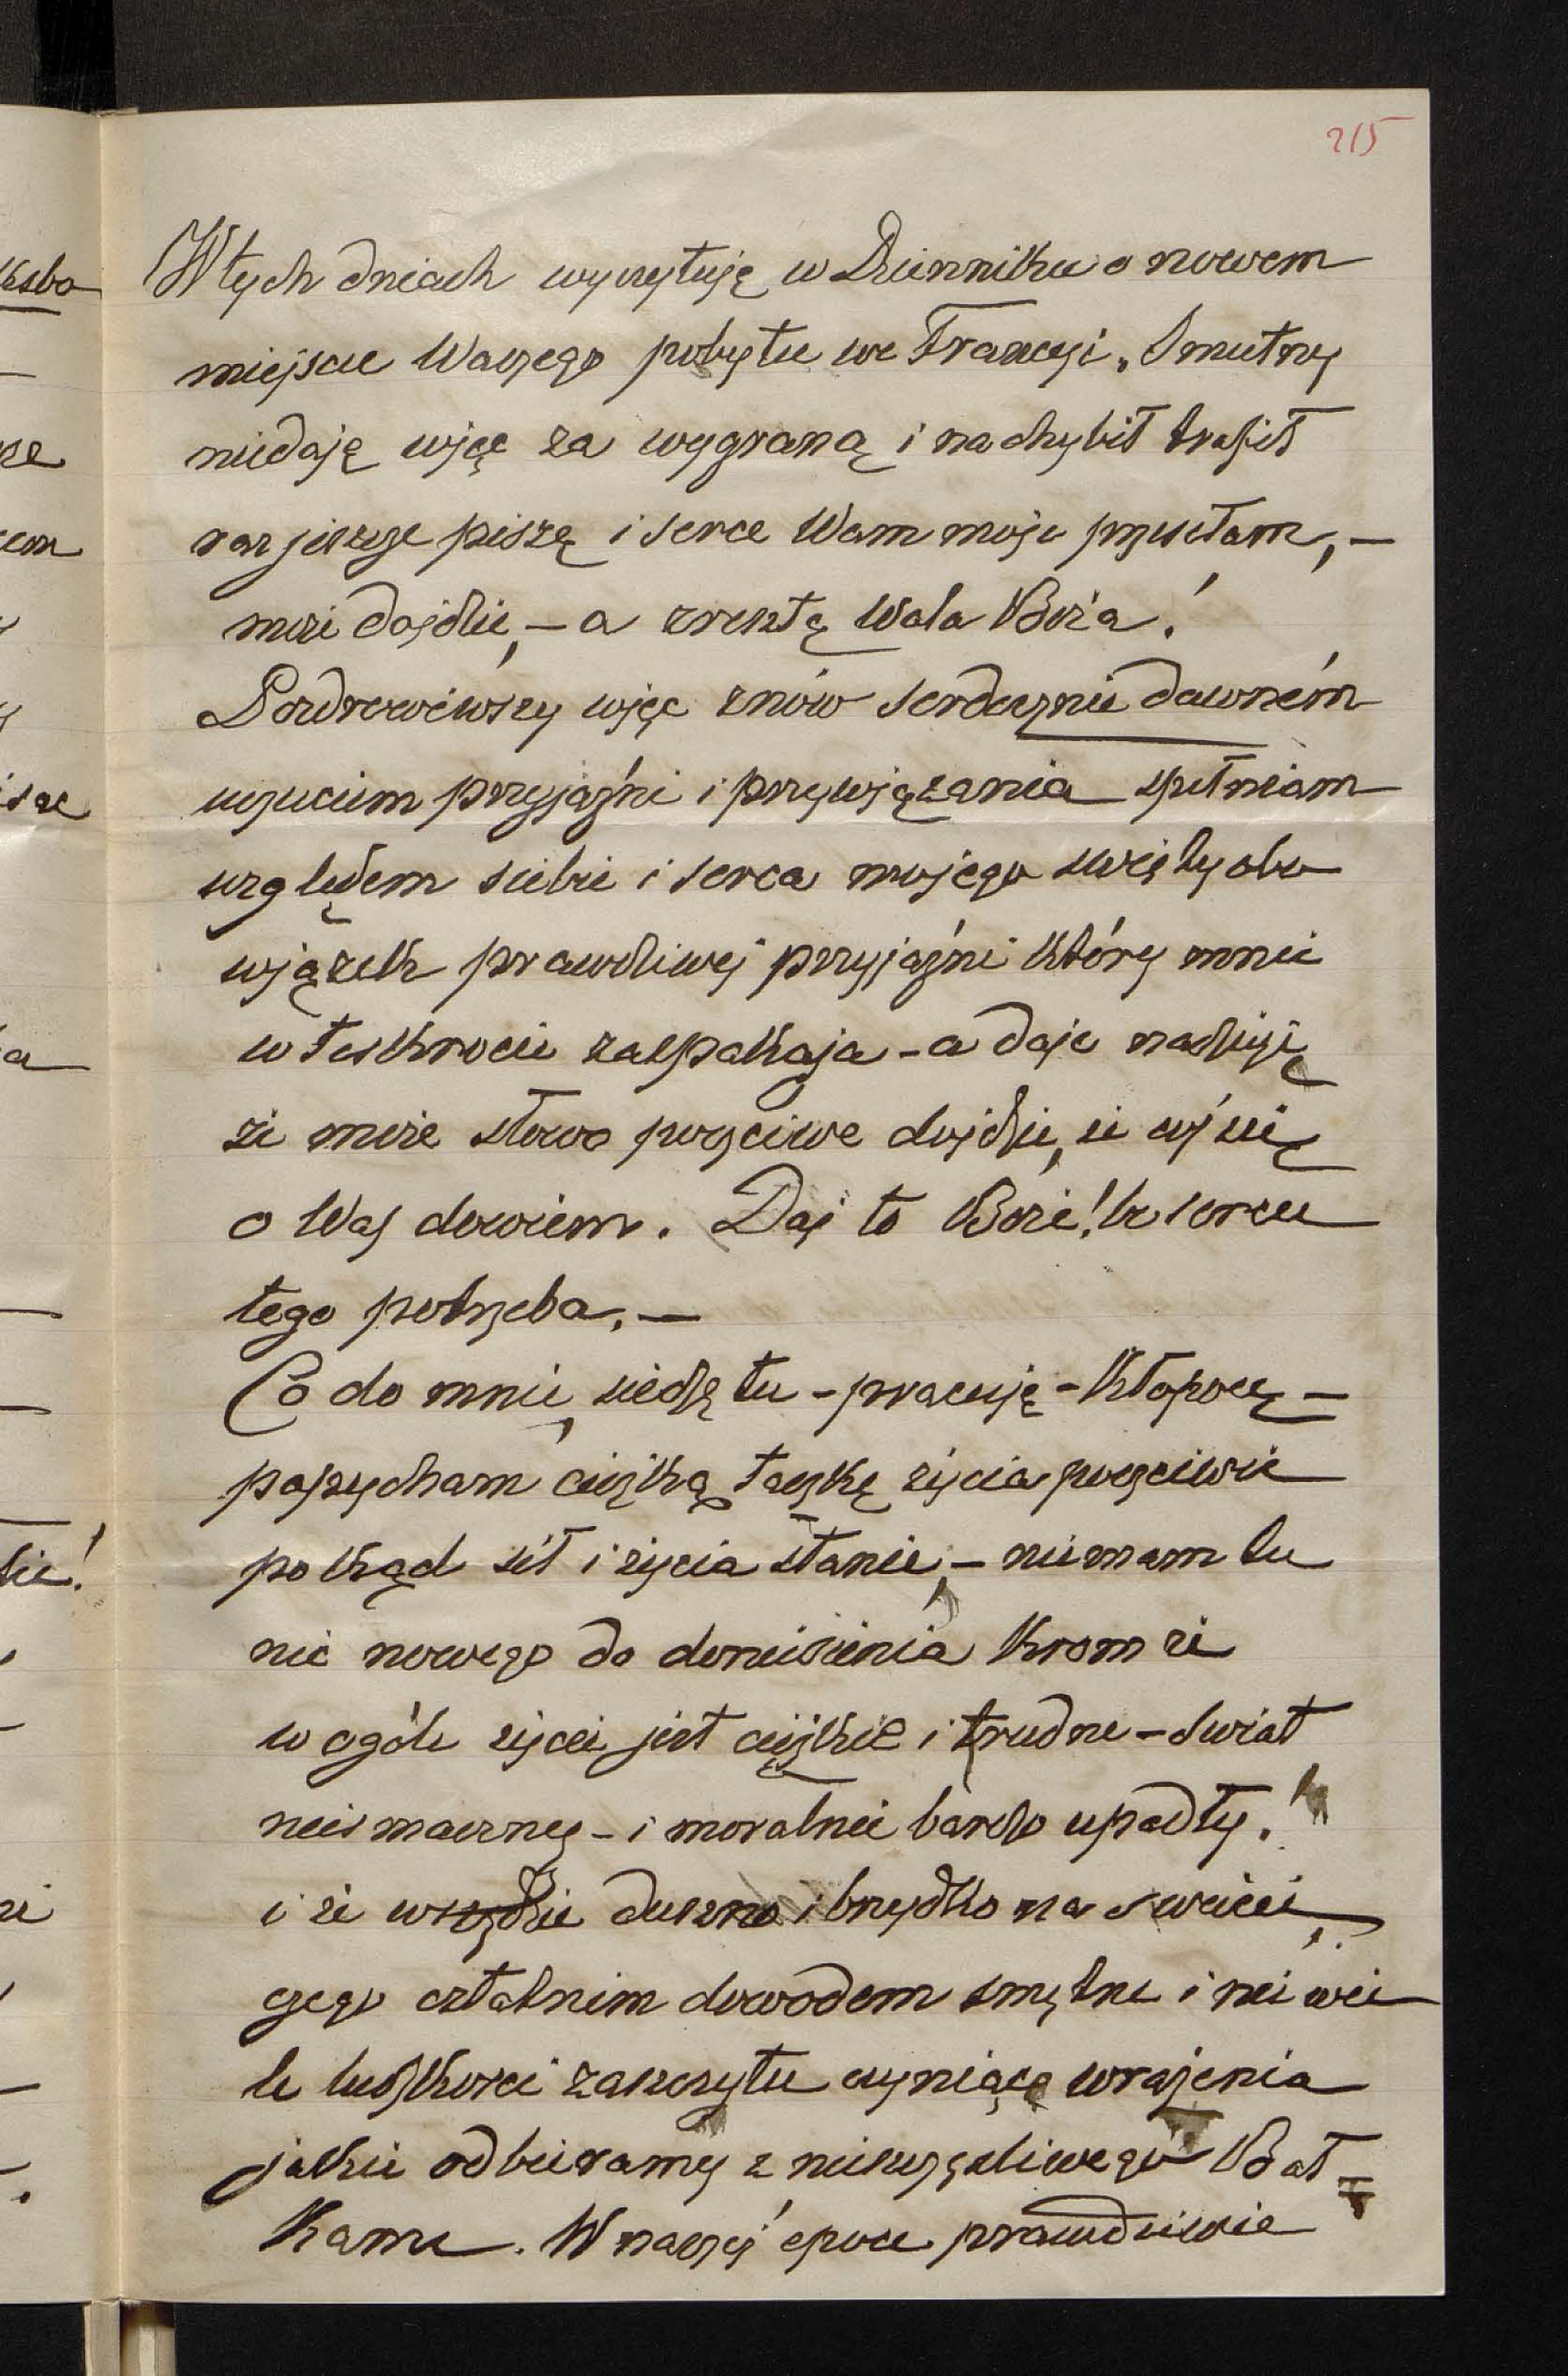 215
W tych dniach wyczytuję w Dzienniku o nowem
miejscu Waszego pobytu we Francyi. Smutny
niedaję więc za wygraną i na chybił trafił
raz jeszcze piszę i serce Wam moje przesełam, —
może dojdzie, — a zresztą Wola Boża!
Pozdrowiwszy więc znów serdecznie dawném
uczuciem przyjaźni i przywiązania spełniam
względem siebie i serca mojego święty obo
wiązek prawdziwej przyjaźni który mnie
w tęsknocie zaspakaja - a daje nadzieję
że może słowo poczciwe dojdzie, że coś się
o Was dowiem. Daj to Boże! bo sercu
tego potrzeba. —
Co do mnie, siedzę tu - pracuję - kłopocę —
popycham ciężką taczkę życia poczciwie
pokąd sił i życia stanie, — niemam tu
nic nowego do doniesienia krom że
w ogóle życie jest ciężkie i trudne - świat
niesmaczny - i moralnie bardzo upadły.
i że wszędzie duszno i brzydko na świecie,
czego ostatnim dowodem smętne i nie wie
le ludzkości zaszczytu czyniące wrażenia
jakie odbieramy z nieszczęśliwego Bał=
kanu. W naszej epoce prawdziwie
ksbo
sze
cem
isze
a
bie!
że